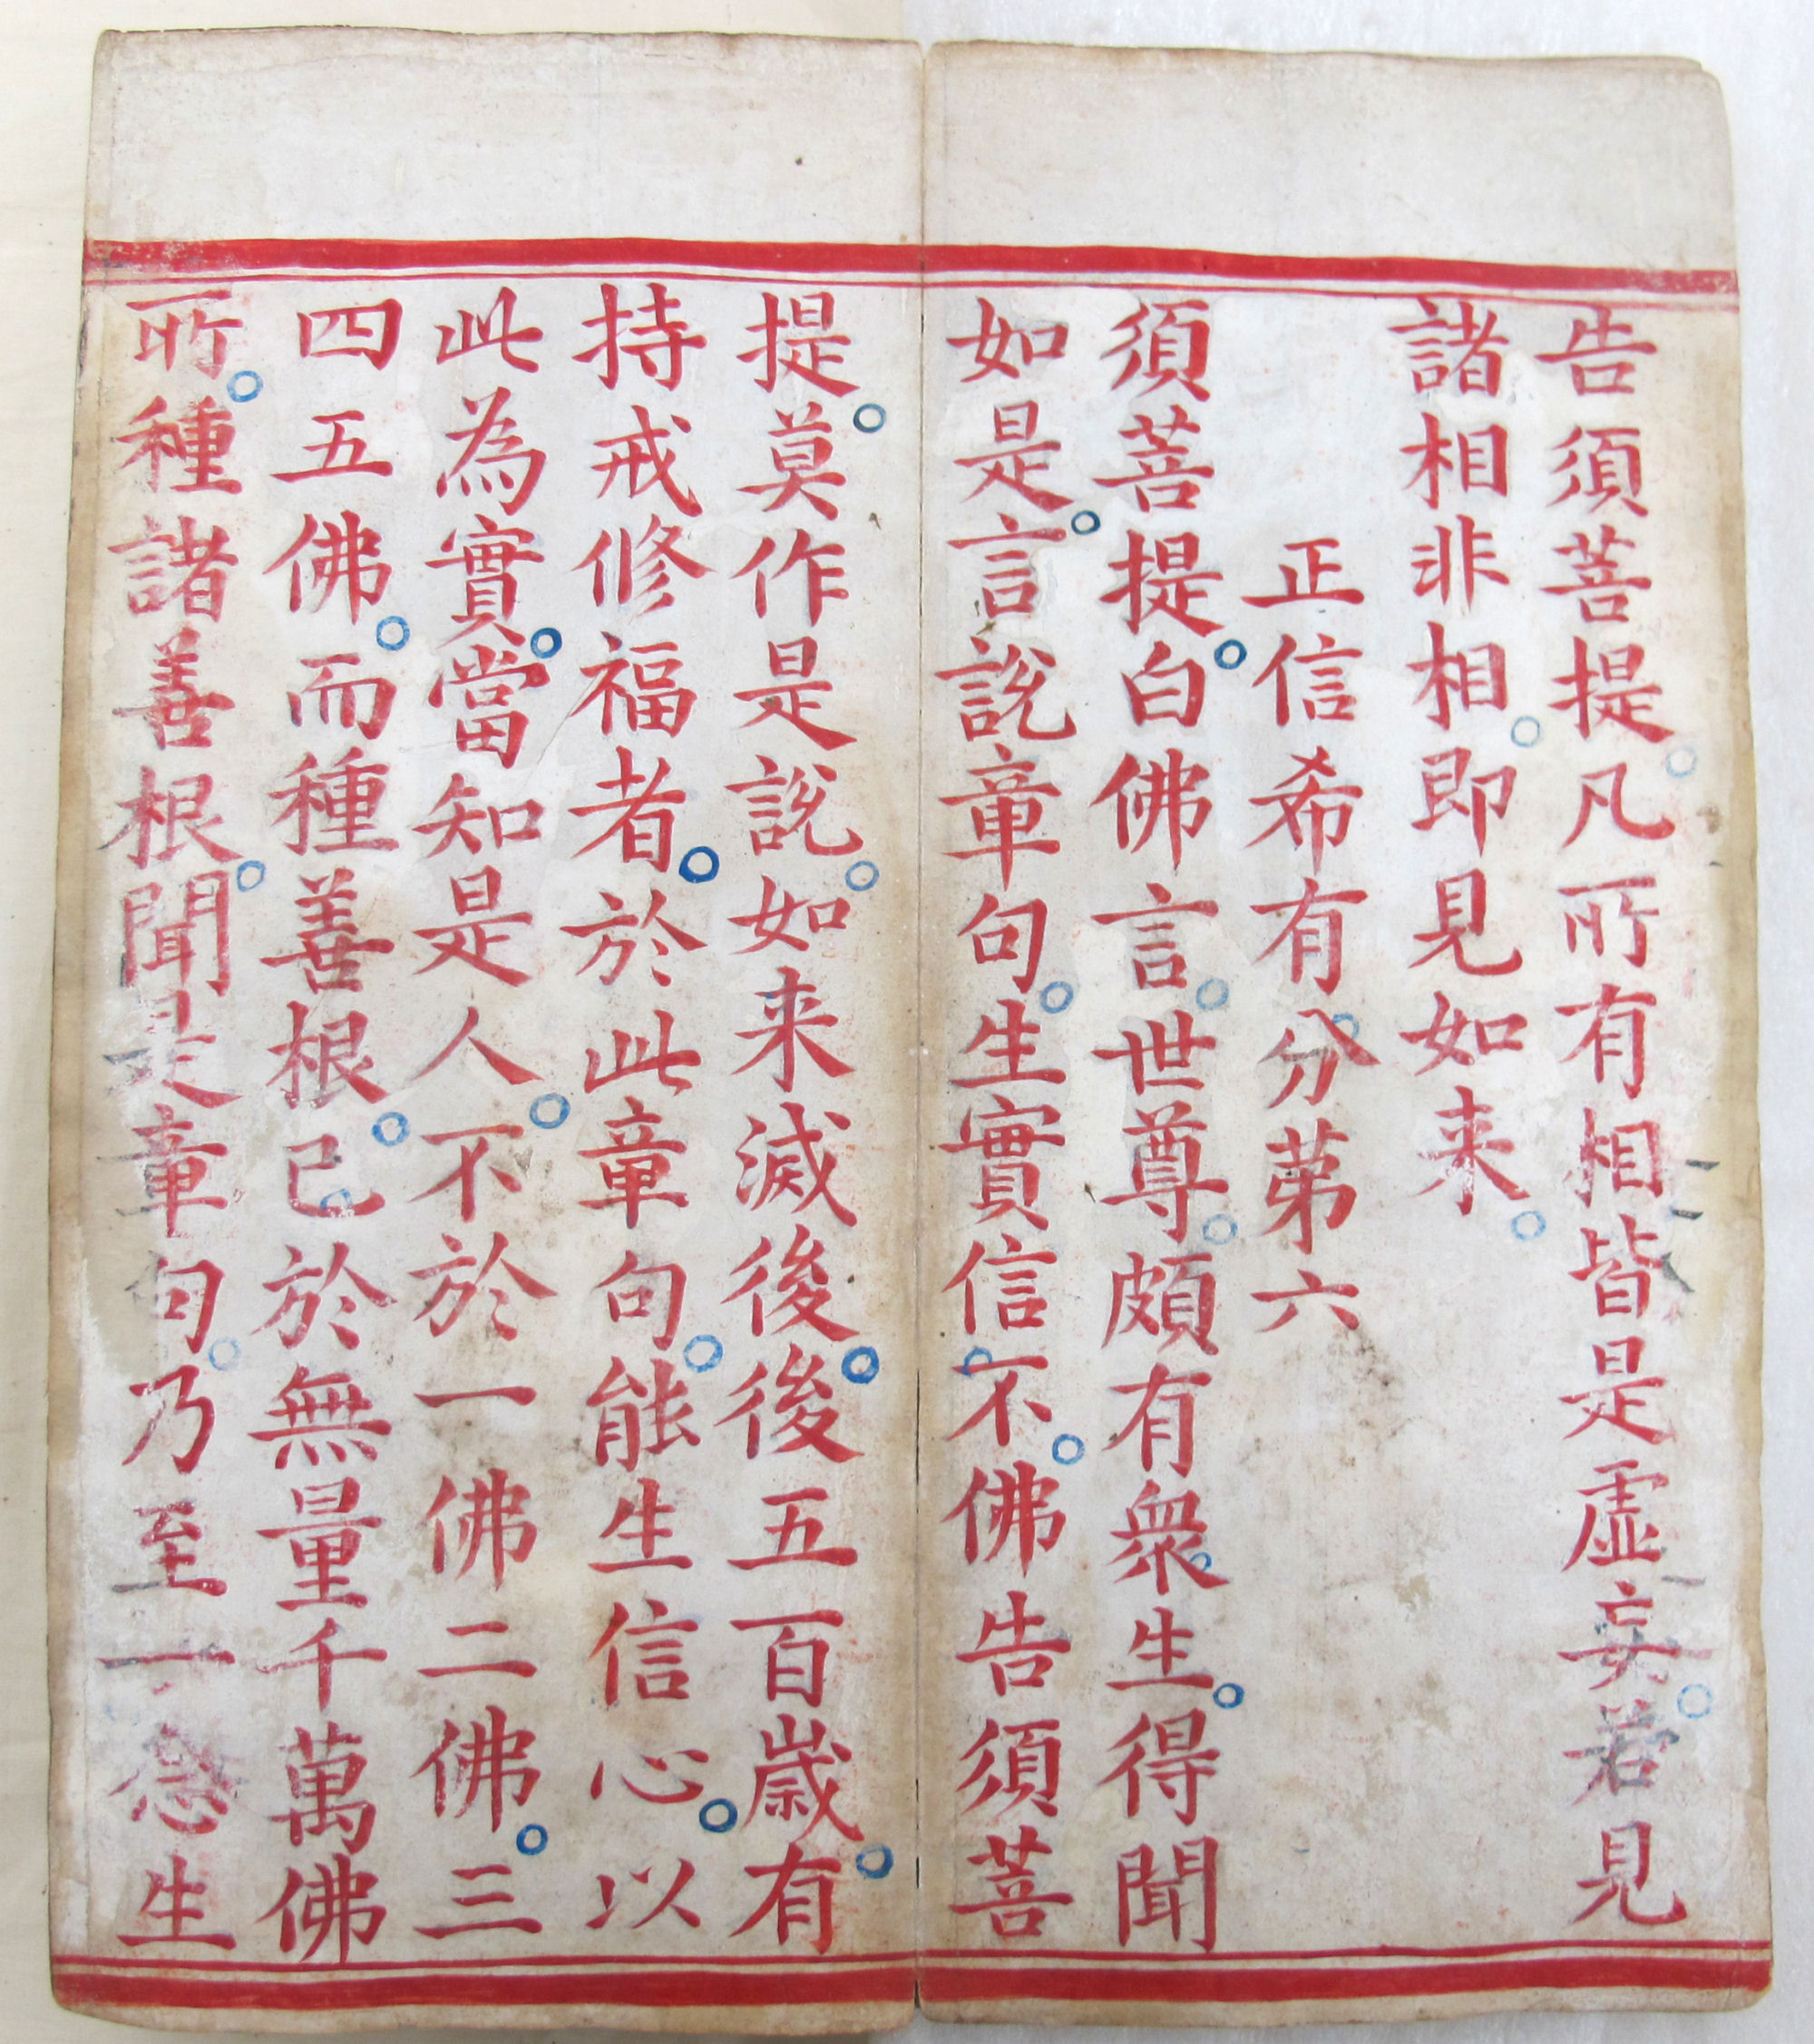 告須菩提。凡所有相皆是虛妄。若見
諸相非相。即見如来。
正信希有。分第六
須菩提。白佛言。世尊。頗有衆。生。得聞
如是。言説章句。生實信。不。佛告須菩
提。莫作是説。如来滅後。後五百歲有。
持戒修福者。於此章句。能生信心。以
此為實。當知是人。不於一佛二佛。三
四五佛。而種善根。已。於無量千萬佛
所。種諸善根。聞是章句。乃至一念生